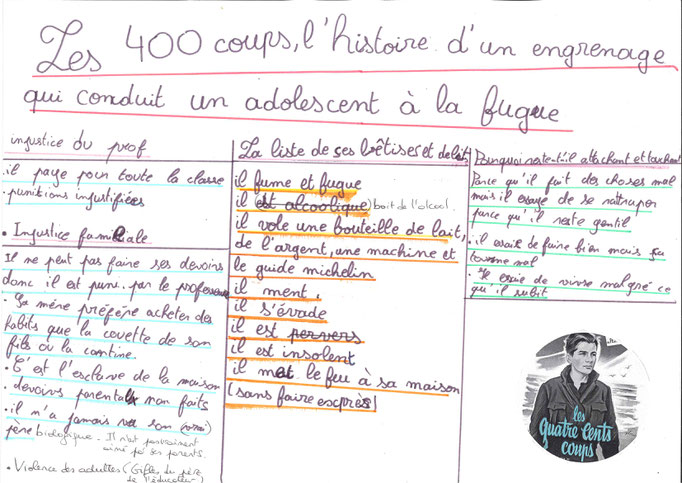 Les 400 coups, l'histoire d'un engrenage
qui conduit un adolescent à la fugue
injustice du prof
il paye pour toute la classe
• punitions injustifiées
• Injustice familiale
Il ne peut pas faire ses devoirs
donc il est puni par le professeur
• Sa mère préfère acheter des
habits que la couette de son
fils ou la cantine.
• C'est l'esclave de la maison
• devoirs parentaux non faits
• il n'a jamais vu son (vrai)
père biologique. Il n'est pas vraiment
aimé par ses parents.
• Violence des adultes (Gifles du père
de l'éducateur)
La liste de ses bêtises et délits
il fume et fugue
il est alcoolique) boit de l'alcool.
il vole une bouteille de lait,
de l'argent, une machine et
le guide michelin
il ment,
il s'évade
il est pervers
il est insolent
il met le feu à sa maison
(sans faire exprès)
Pourquoi reste-t'il attachant et touchant
Parce qu'il fait des choses mal
mais il essaye de se rattraper
parce qu'il reste gentil
• il essaie de faire bien mais ça
tourne mal
• Il essaie de vivre malgré ce
qu'il subit
les
quatre cents
coups